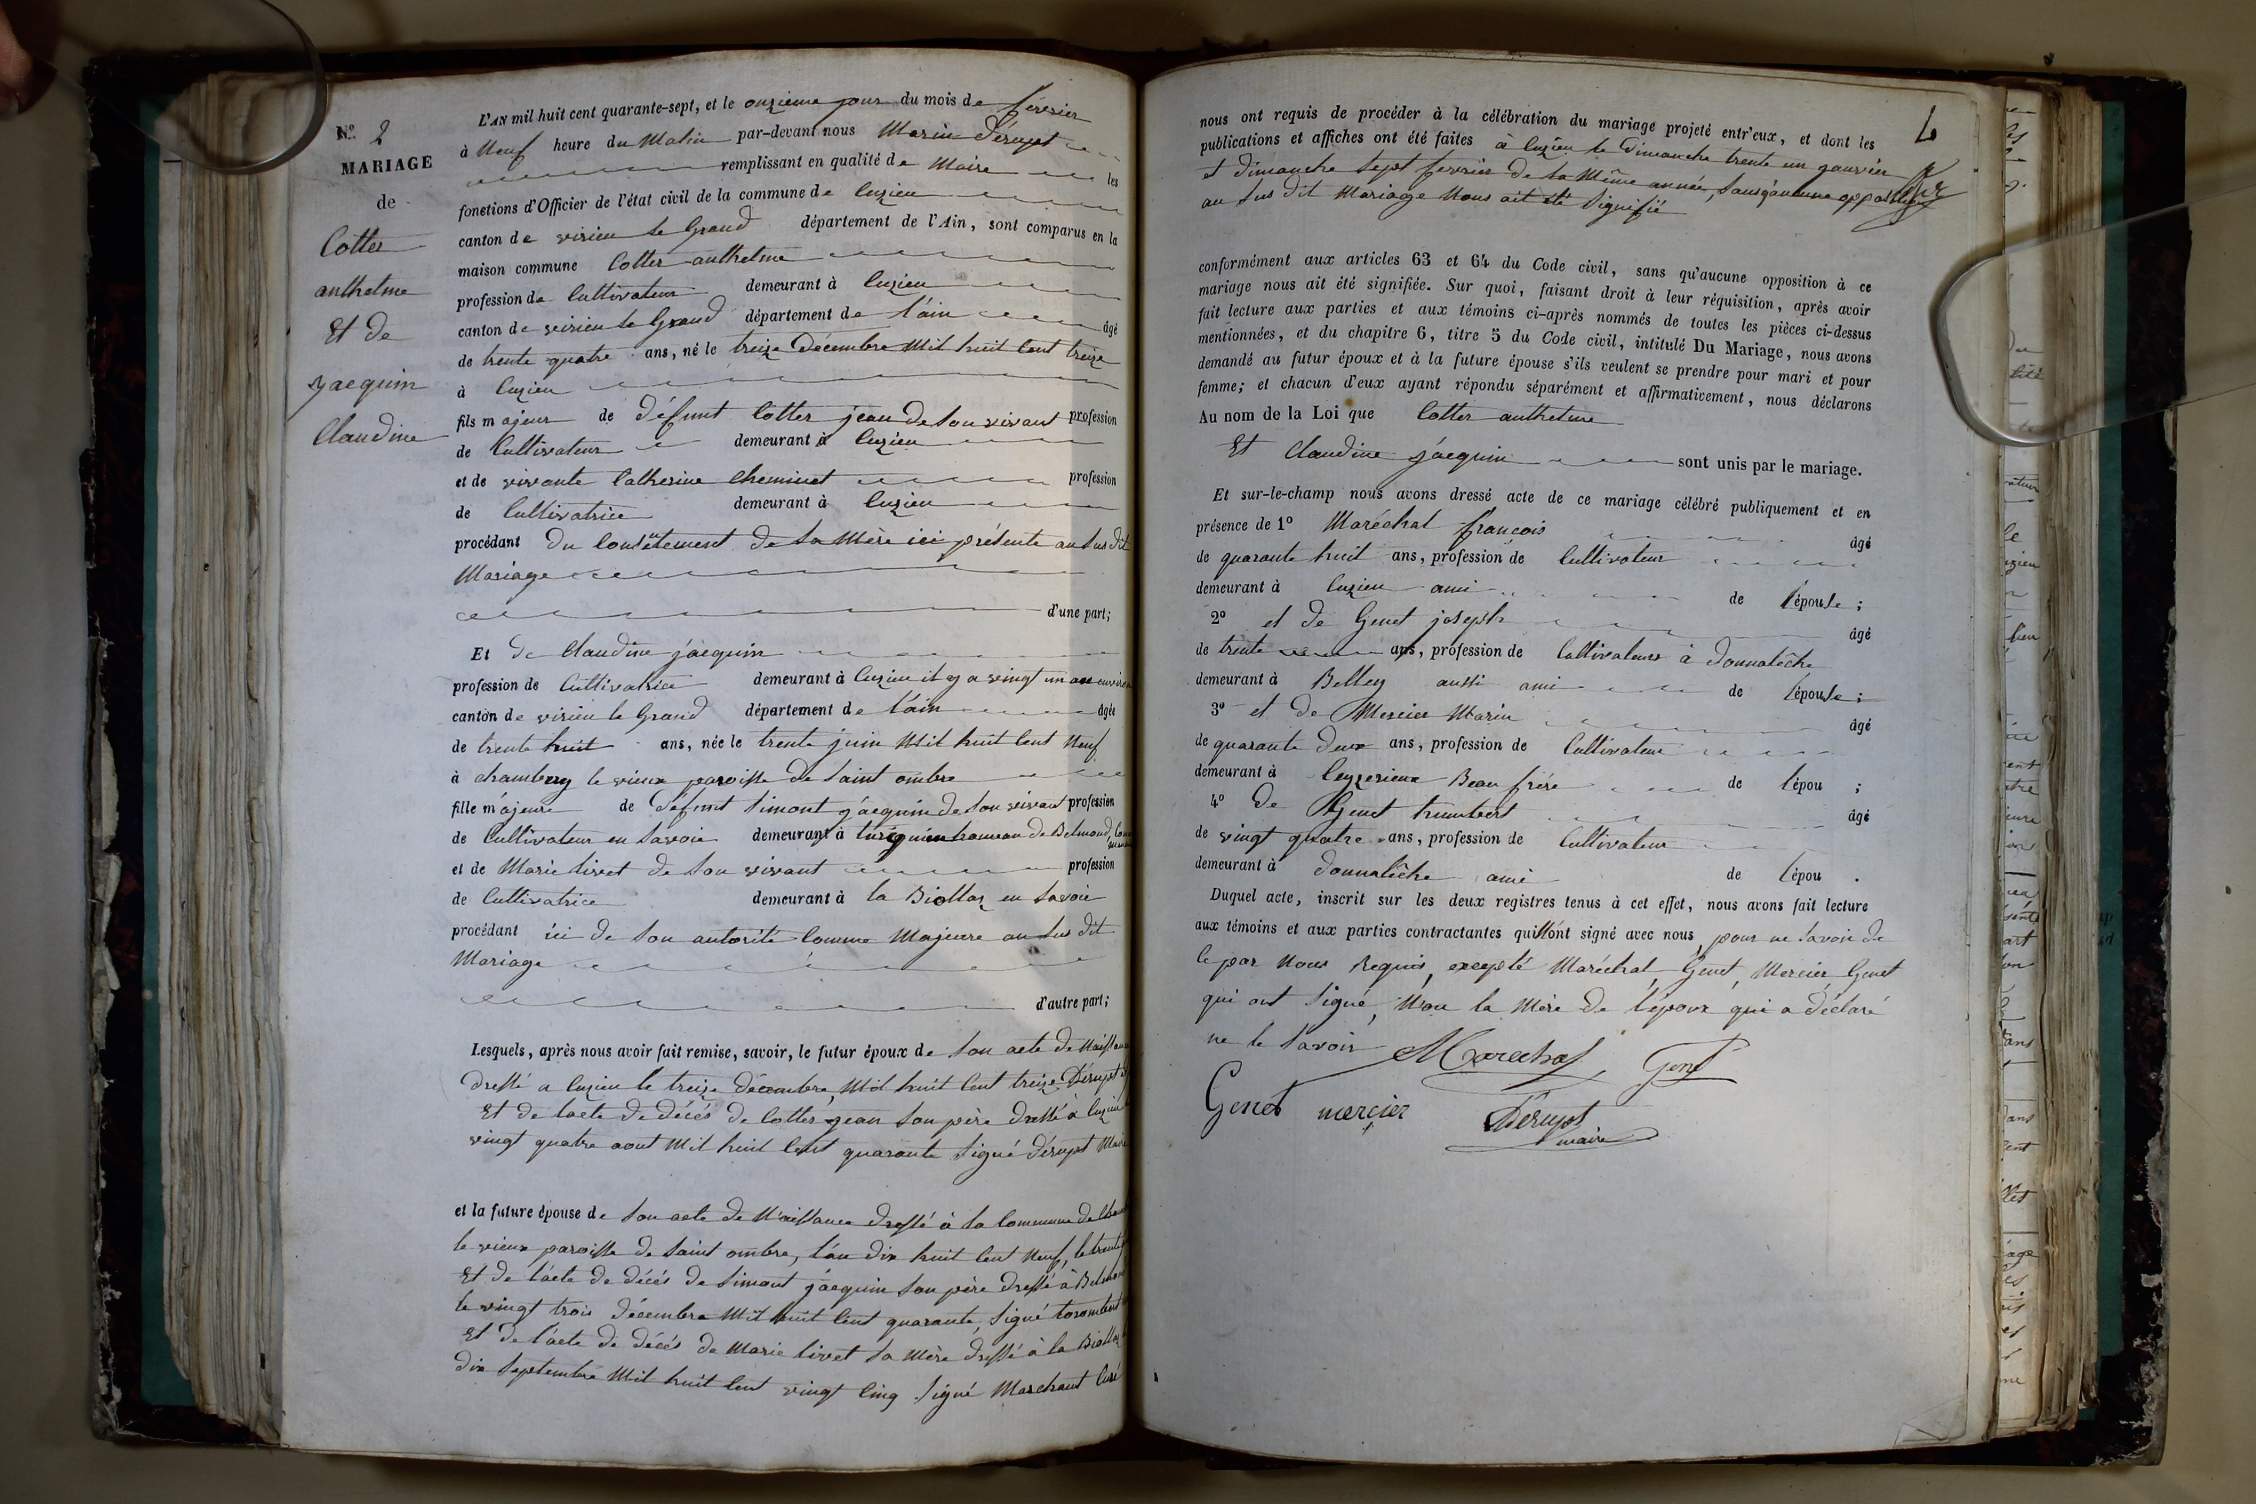 N.º 2
MARIAGE
de
Cotter
anthelme
Et de
jacquin
Claudine
L'AN mil huit cent quarante-sept, et le onzieme jour du mois de février
à Neuf heure du Matin par-devant nous Marin Dérupt
remplissant en qualité de Maire les
fonctions d'Officier de l'état civil de la commune de Cuzieu
canton de virieu le Grand département de l'Ain, sont comparus en la
maison commune Cotter anthelme
profession de Cultivateur demeurant à Cuzieu
canton de virieu le Grand département de l'ain âgé
de trente quatre ans, né le treize Décembre Mil huit Cent treize
à Cuzieu
fils majeur de défunt Cotter jean de Son vivant profession
de Cultivateur demeurant à Cuzieu
et de vivante Catherine Cheminet profession
de Cultivatrice demeurant à Cuzieu
procédant du Consentement de Sa Mère ici présente au Sus dit
Mariage
d'une part;
Et de Claudine jacquin
profession de Cultivatrice demeurant à Cuzieu il y a vingt un an environ
canton de virieu le Grand département de l'ain âgée
de trente huit ans, née le trente juin Mil huit Cent Neuf
à chambery le vieux paroisse de Saint ombre
fille majeure de défunt Simont jacquin de Son vivant profession
de Cultivateur en Savoie demeurant à hameau de Belmond
et de Marie livet de Son vivant profession
de Cultivatrice demeurant à la Biollaz en Savoie
procédant ici de Son autorité Comme Majeure au Sus dit
Mariage
d'autre part;
Lesquels, après nous avoir fait remise, savoir, le futur époux de Son acte de Naissance
dressé a Cuzieu le treize décembre, Mil huit Cent treize Dérupt
Et de l'acte de décés de Cotter jean Son père dressé à Cuzieu
vingt quatre aout Mil huit Cent quarante Signé Dérupt Maire
et la future épouse de Son acte de Naissance dressé à la Commune de
le vieux paroisse de Saint ombre, l'an dix huit Cent Neuf, le trente
Et de l'acte de décés de Simont jacquin Son père dressé à
le vingt trois décembre Mil huit Cent quarante, Signé
Et de l'acte de décés de Marie livet Sa Mère dressé à la Biollaz
dix Septembre Mil huit Cent vingt Cinq Signé Marchant Curé
4
nous ont requis de procéder à la célébration du mariage projeté entr'eux, et dont les
publications et affiches ont été faites à Cuzieu le Dimanche trente un janvier
et Dimanche Sept fevrier de la Même année, Sans qu'aucune opposition
au Sus dit Mariage Nous ait été Signifié
conformément aux articles 63 et 64 du Code civil, sans qu'aucune opposition à ce
mariage nous ait été signifiée. Sur quoi, faisant droit à leur réquisition, après avoir
fait lecture aux parties et aux témoins ci-après nommés de toutes les pièces ci-dessus
mentionnées, et du chapitre 6, titre 5 du Code civil, intitulé Du Mariage, nous avons
demandé au futur époux et à la future épouse s'ils veulent se prendre pour mari et pour
femme; et chacun d'eux ayant répondu séparément et affirmativement, nous déclarons
Au nom de la Loi que Cotter anthelme
Et Claudine jacquin sont unis par le mariage.
Et sur-le-champ nous avons dressé acte de ce mariage célébré publiquement et en
présence de 1º Maréchal françois âgé
de quarante huit ans, profession de Cultivateur
demeurant à Cuzieu ami de l'épouse;
2º et de Genet joseph âgé
de trente ans, profession de Cultivateur à Donnalêche
demeurant à Belley aussi ami de l'épouse;
3º et de Mercier Marin âgé
de quarante deux ans, profession de Cultivateur
demeurant à Ceyzerieux Beau frère de l'épou ;
4º de Genet humbert âgé
de vingt quatre ans, profession de Cultivateur
demeurant à Donnalêche ami de l'épou .
Duquel acte, inscrit sur les deux registres tenus à cet effet, nous avons fait lecture
aux témoins et aux parties contractantes qui ont signé avec nous, pour ne Savoir de
Ce par Nous Requis, excepté Maréchal, Genet, Mercier, Genet
qui ont Signé, Non la Mère de l'époux qui a déclaré
ne le Savoir Marechal Genet
Genet mercier Dérupt
maire